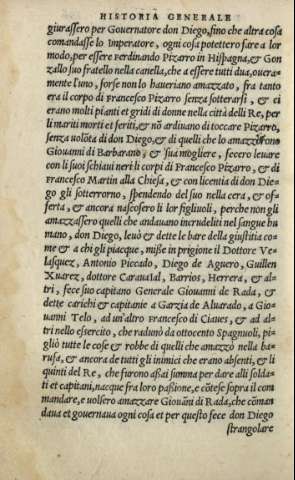 HISTORIA GENERALE
giurassero per Governatore don Diego, fino che altra cosa
comandasse lo Imperatore, ogni cosa potettero fare a lor
modo, per essere Ferdinando Pizarro in Hispagna, & Gon
zallo suo fratello nella canella, che a essere tutti dua, overa-
mente l'uno, forse non lo haveriano amazzato, fra tanto
era il corpo di Francesco Pizarro senza sotterarsi, & ci
erano molti pianti et gridi di donne nella città delli Re, per
li mariti morti et feriti, & nō ardivano di toccare Pizarro,
senza uolōta di don Diego, & di quelli che lo amazzorono
Giouanni di Barbarano, & sua mogliere, fecero leuare
con li suoi schiaui neri li corpi di Francesco Pizarro, & di
Francesco Martin alla Chiesa, & con licentia di don Die
go gli sotterrorno, spendendo del suo nella cera, & of-
ferta, & ancora nascosero li lor figliuoli, perche non gli
amazzassero quelli che andauano incrudeliti nel sangue hu
mano, don Diego, leuò & dette le bare della giustitia co
me & a chi gli piacque, misse in prigione il Dottore Ve-
lasquez, Antonio Piccado, Diego de Aguero, Guillen
Xuarez, dottore Carauaial, Barrios, Herrera, & al-
tri, fece suo capitano Generale Giouanni de Rada, &
dette carichi & capitanie a Garzia de Aluarado, a Gio
uanni Telo, ad un'altro Francesco di Ciaues, & ad al-
tri nello essercito, che radunò da ottocento Spagnuoli, pi-
gliò tutte le cose & robbe di quelli che amazzò nella ba-
rusa, & ancora de tutti gli inimici che erano absenti, & li
quinti del Re, che furono assai summa per dare alli solda-
ti et capitani, nacque fra loro passione, e cōtese sopra il com
mandare, e uolsero amazzare Giouāni di Rada, che cōman
daua et gouernaua ogni cosa et per questo fece don Diego
strangolare